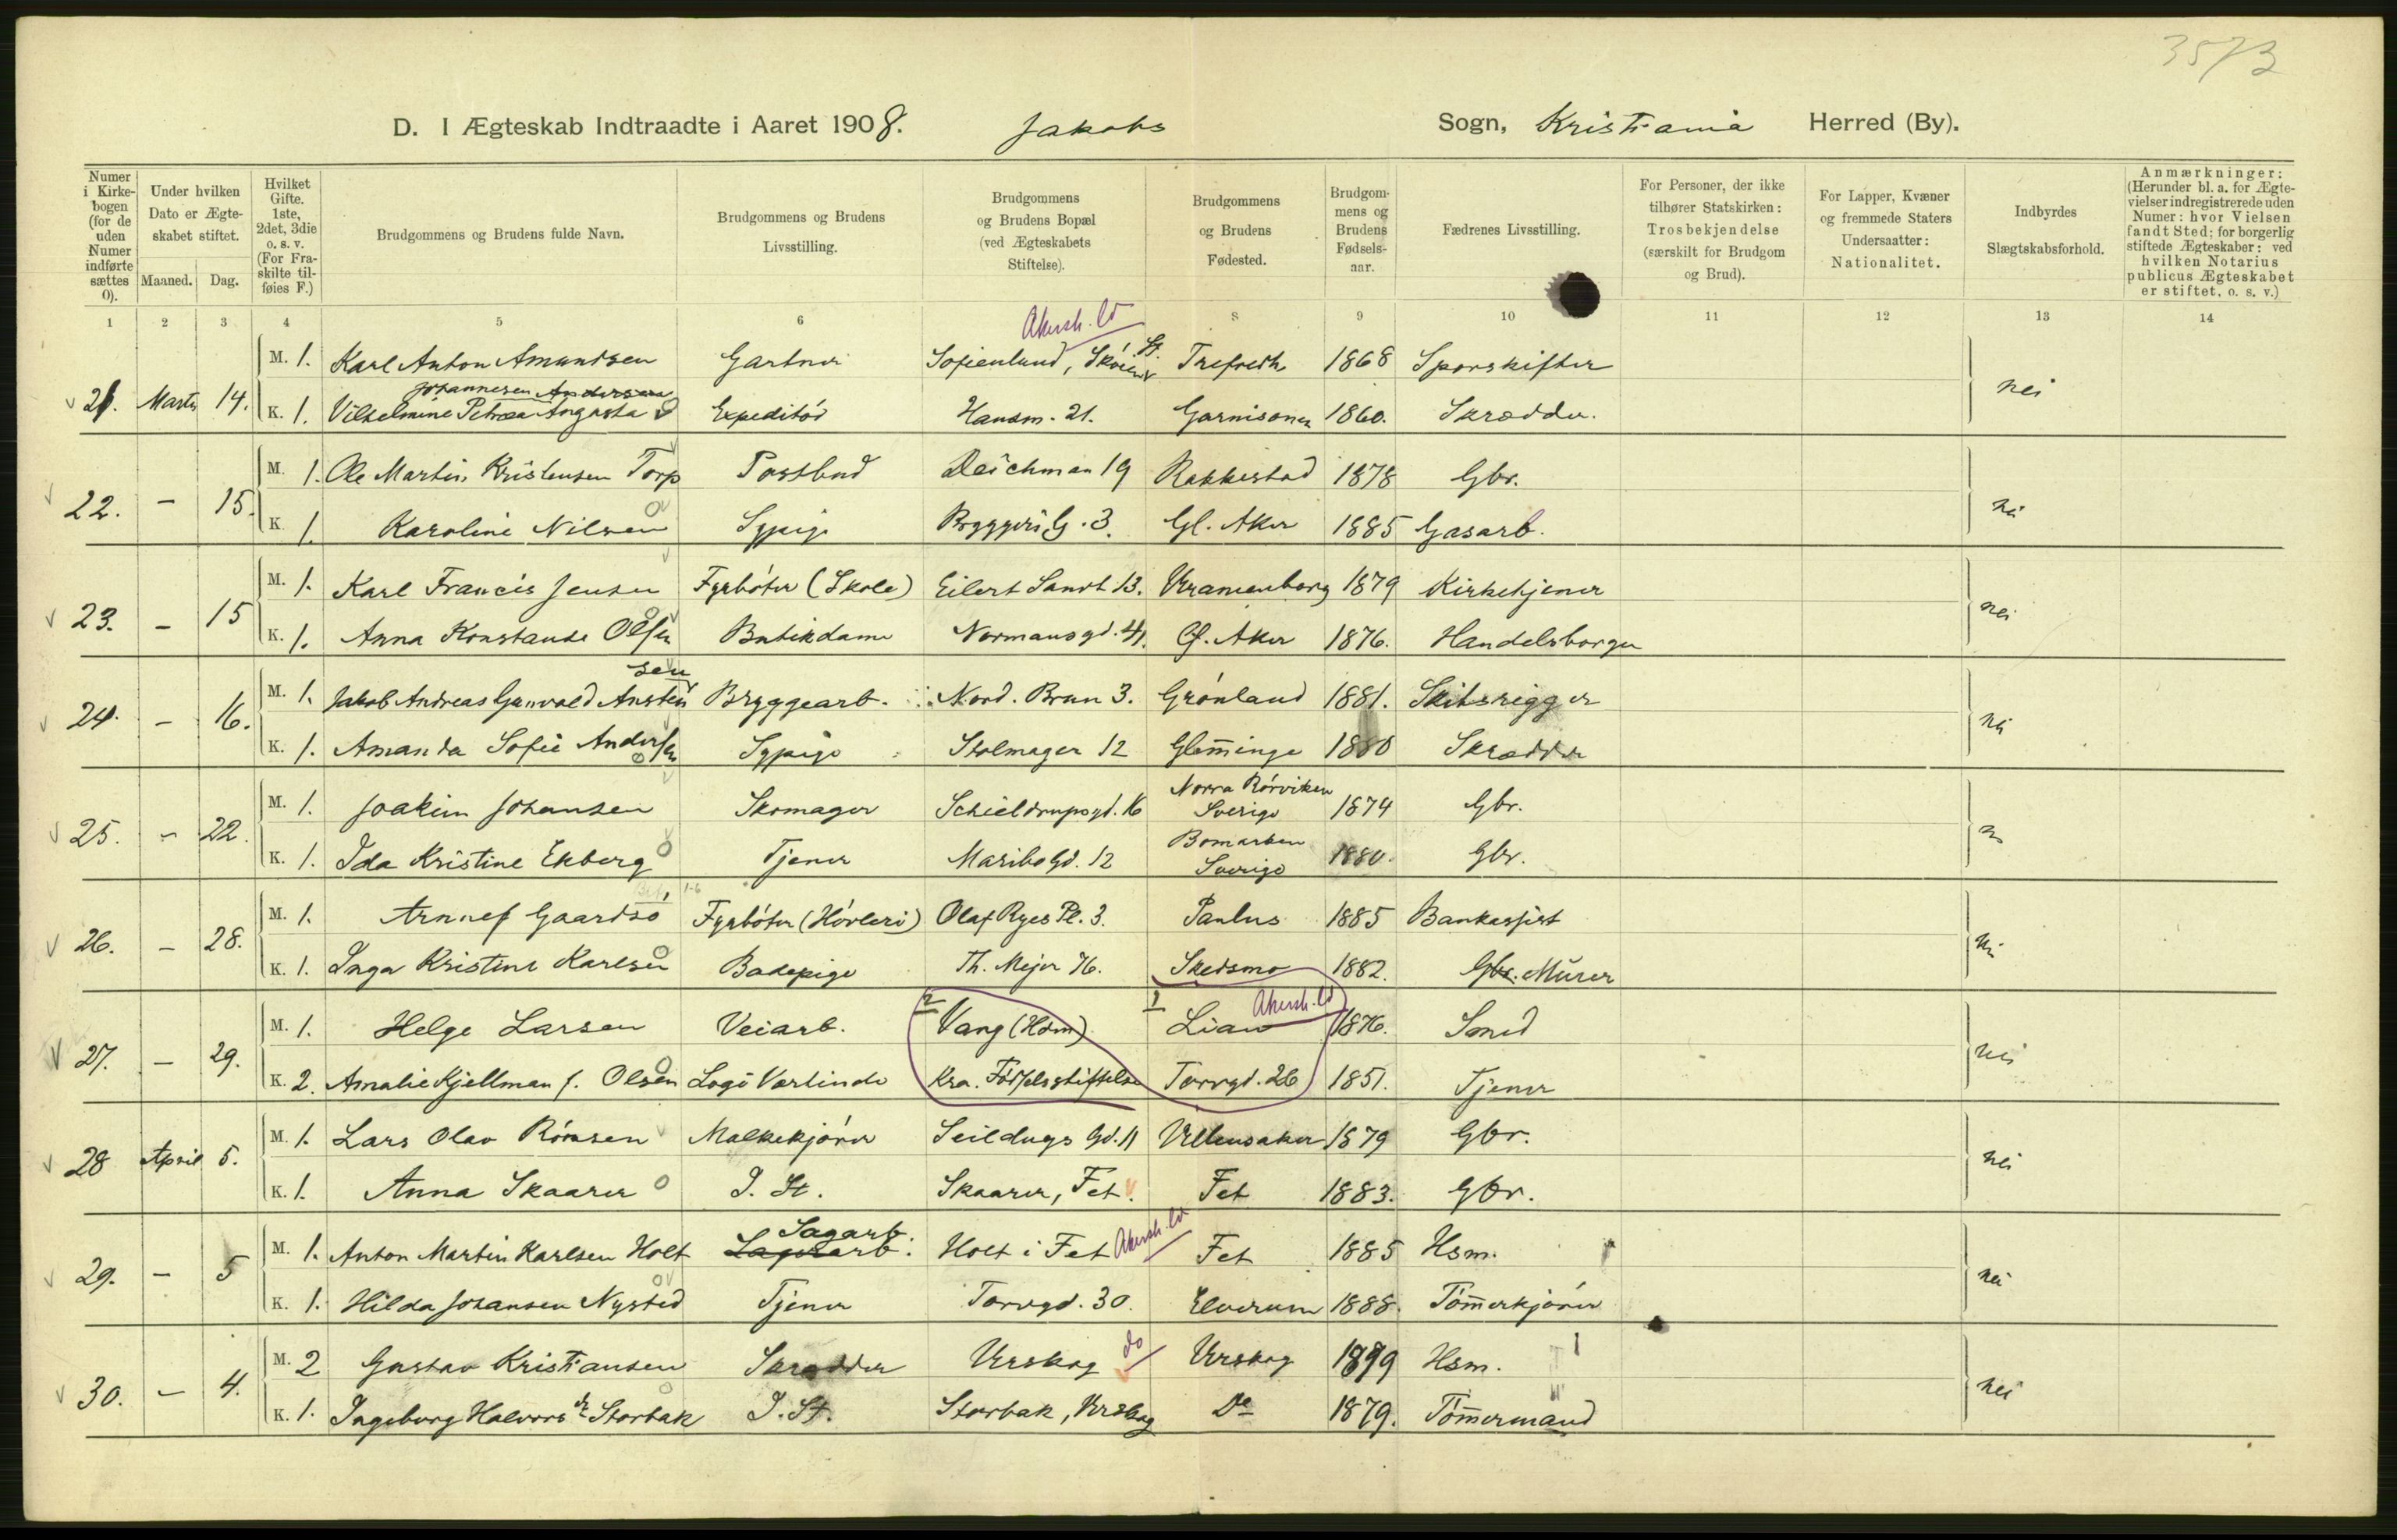 3573
D. I Ægteskab Indtraadte i Aaret 1908. Jakobs Sogn, Kristiania Herred (By).
Numer i Kirkebogen (for de uden Numer indførte sættes 0).
Under hvilken Dato er Ægteskabet stiftet.
Maaned. Dag.
Hvilket Gifte. 1ste, 2det, 3die o. s. v. (For Fraskilte tilføies F.)
Brudgommens og Brudens fulde Navn.
Brudgommens og Brudens Livsstilling.
Brudgommens og Brudens Bopæl (ved Ægteskabets Stiftelse).
Brudgommens og Brudens Fødested.
Brudgommens og Brudens Fødselsaar.
Fædrenes Livsstilling.
For Personer, der ikke tilhører Statskirken: Trosbekjendelse (særskilt for Brudgom og Brud).
For Lapper, Kvæner og fremmede Staters Undersaatter: Nationalitet.
Indbyrdes Slægtskabsforhold.
Anmærkninger: (Herunder bl. a. for Ægtevielser indregistrerede uden Numer: hvor Vielsen fandt Sted; for borgerlig stiftede Ægteskaber: ved hvilken Notarius publicus Ægteskabet er stiftet, o. s. v.)
1 2 3 4 5 6 8 9 10 11 12 13 14
Akersh. 
M. 1. Karl Anton Amundsen Gartner Sofienlund, Skøien St. 1868 Sporskifter
21. Marts 14. nei
Johannesen Andersen
K. 1. Vilhelmine Petrea Augusta Expeditør Hausm. 21. Garnisonen 1860. Skrædder.
M. 1. Ole Martin Kristensen Torp Postbud Deichman 19 Rakkestad 1878 Gbr.
22. – 15. nei
K. 1. Karoline Nilsen Sypige Bryggeri G. 3. Gl. Aker 1885 Gasarb.
M. 1. Karl Francis Jensen Fyrbøter (Skole) Eilert Sundt 13. Uranienborg 1879 Kirketjener
23. – 15 nei
K. 1. Anna Konstanse Olsen Butikdame Normansgd. 41. Gl. Aker 1876. Handelsborger
sen
M. 1. Jakob Andreas Gunvald Austen Bryggearb. Nord. Brun 3. Grønland 1881. Skibsrigger
24. – 16. nei
K. 1. Amanda Sofie Andersen Sypige Stolmager 12 Glemminge 1880 Skrædder
M. 1. Joakim Johansen Skomager Schieldrupsgd. 16 Norra Rörviken Sverige 1874 Gbr.
25. – 22. n
K. 1. Ida Kristine Ekberg Tjener Maribo Gd. 12 Bomarken Sverige 1880. Gbr.
M. 1. Arnnef Gaardsø Fyrbøter (Høvleri) Olaf Ryes Pl. 3. Paulus 1885 Bankassist
26. – 28. nei
K. 1. Inga Kristine Karlsen Badepige Th. Mejer 76. Skedsmo 1882. Gbr. Murer
2 1 Akersh.
M. 1. Helge Larsen Veiarb. Vang (Hdm) Lian 1876. Smed
27. – 29. nei
K. 2. Amalie Kjellman f. Olsen Logi Værtinde Kra. Fødselsstiftelse Torvgd. 26 1851. Tjener
M. 1. Lars Olav Rønsen Melkekjører Seildugs Gd. 11 Ullensaker 1879 Gbr.
28 April 5. nei
K. 1. Anna Skaarer I. St. Skaarer, Fet. Fet 1883. Gbr.
Sagarb.
M. 1. Anton Martin Karlsen Holt Lagerarb. Holt i Fet Akersh. Fet 1885 Hsm.
29. – 5 nei
K. 1. Hilda Johansen Nysted Tjener Torvgd. 30. Elverum 1888. Tømmerkjører
M. 2 Gustav Kristiansen Skrædder Urskog do Urskog 1899 Hsm.
30. – 4. nei
K. 1. Ingeborg Halvorsdr. Storbak I. St. Storbak, Urskog Do 1879. Tømmermand